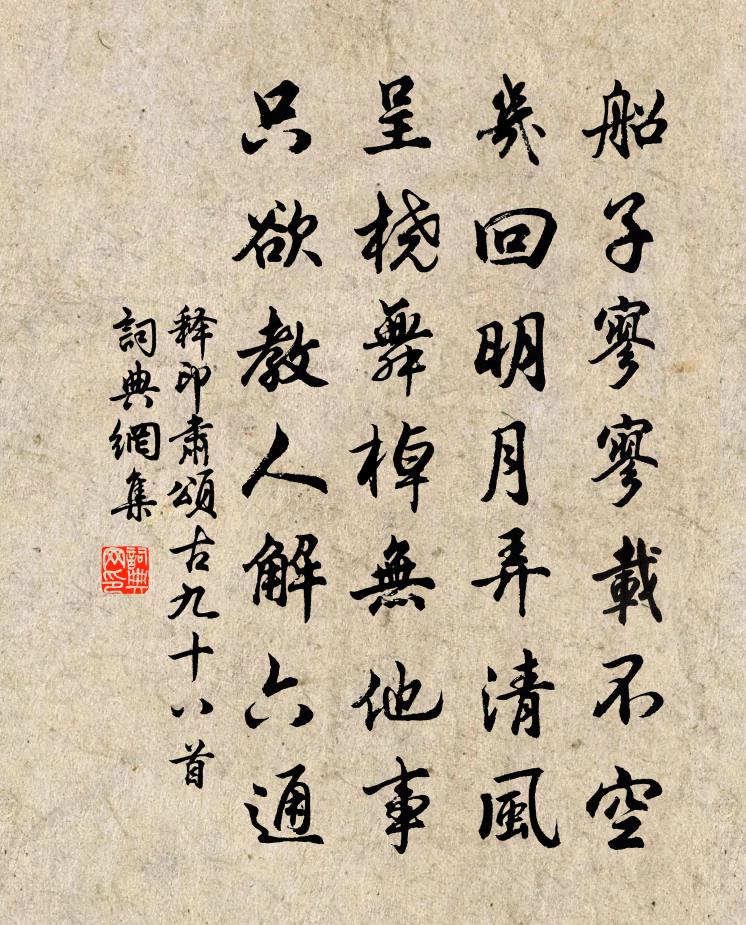 船子寥寥載不空
幾回明月弄清風
呈橈舞棹無他事
只欲教人解六通
释印肅頌古九十八首
詞典網集
詞典網印